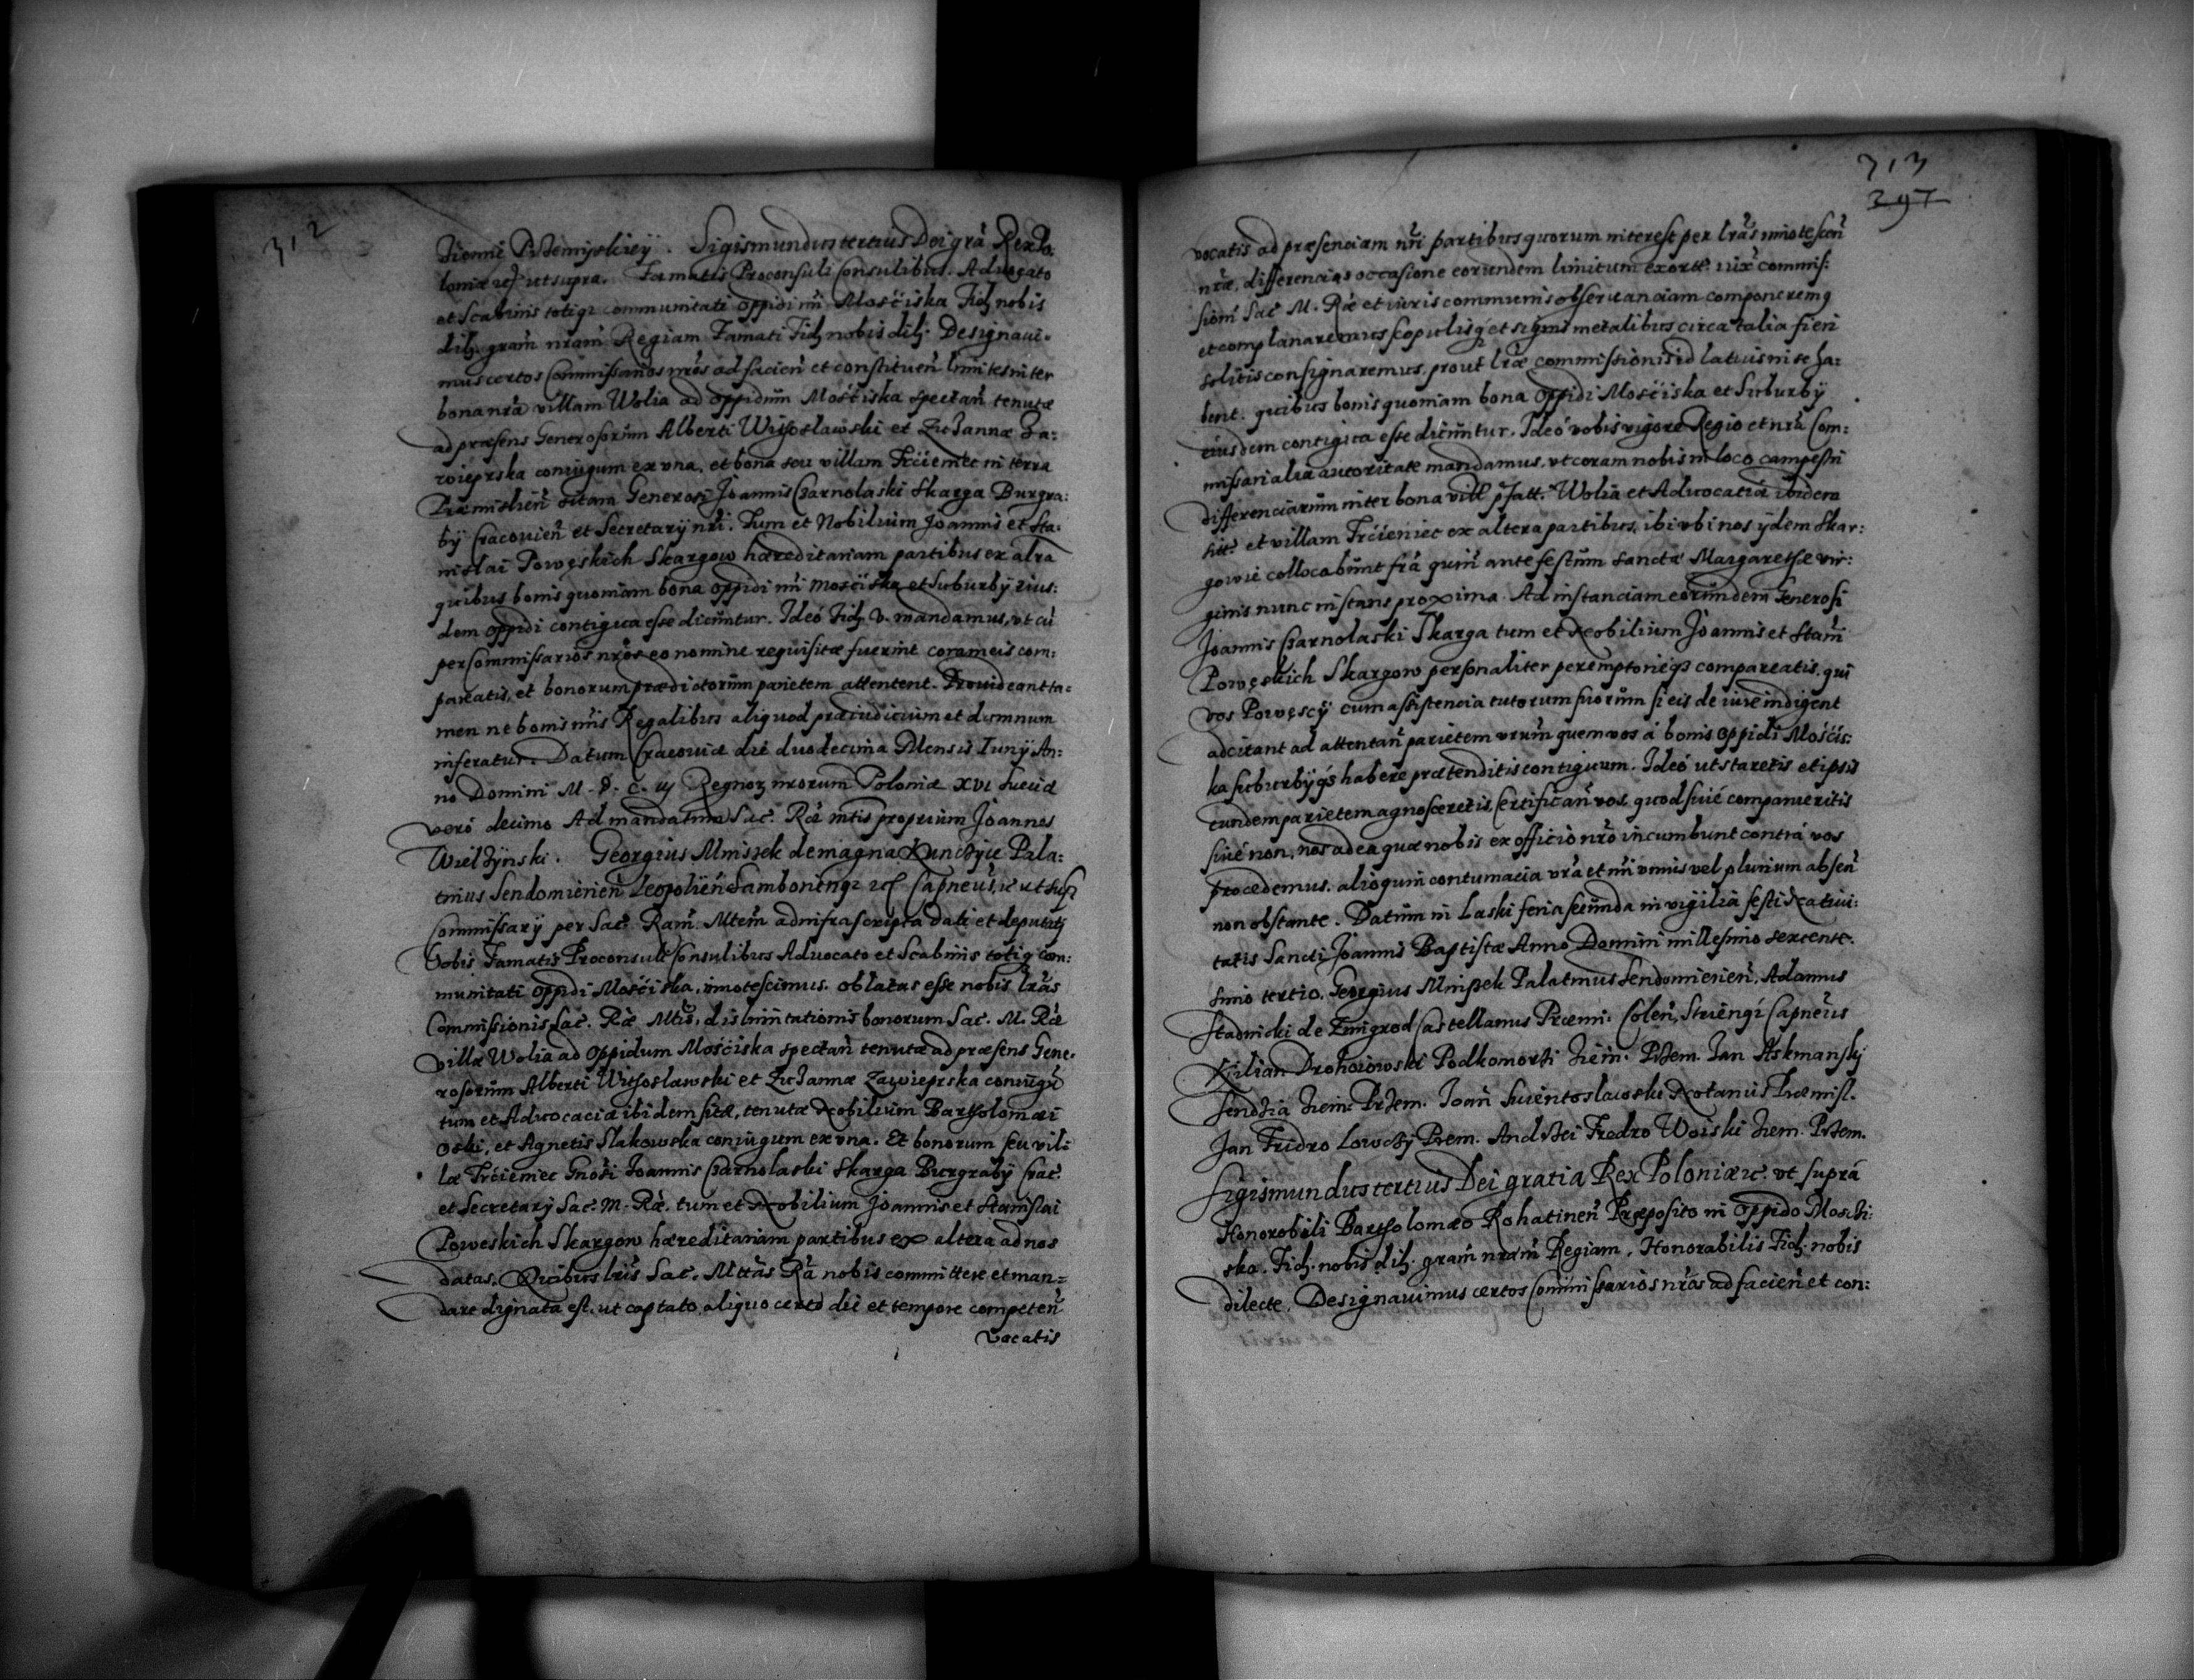 312
Ziemie Przemyskieÿ. Sigismundus tertius Dei grã Rex Po:
loniæ etc ut supra. Famatis Proconsuli Consulibus. Advocato
et Scabinis totiqz communitati Oppidi nr̃i Mościska Fidz nobis
dilz. gram nram Regiam Famati Fidz nobis dilz. Designaui-
mus certos Commissarios nros ad facien̄ et constituen̄ limites inter
bona nrã villam Wolia ad Oppidum Mościska spectan̄ tenutæ
ad præsens Generosorum Alberti Withoslawski et Zuzannæ Za:
wieprska coniugum ex vna, et bona seu villam Trcieniec in terra
Præmislien̄ sitam Generosi Joannis Czarnolaski Skarga Burgra:
bÿ Cracouien̄ et Secretarÿ nr̃i. Tum et Nobilium Joannis et Sta:
nislai Powęskich Skargow hæreditariam partibus ex alrã
quibus bonis quoniam bona Oppidi nr̃i Mościska et Suburbÿ eius:
dem Oppidi contigua esse dicuntur. Ideó Fidz. V. mandamus, vt cũ
per Commissarios nros eo nomine requisitæ fuerint coram eis com:
pareatis, et bonorum prædictorum parietem attentent. Prouideant ta=
men ne bonis nr̃is Regalibus aliquod præiudicium et damnum
inferatur. Datum Cracouiæ die duodecima Mensis Iunÿ An:
no Domini M. D. C. iij Regnorz nrorum Poloniæ XVI Sueciæ
veró decimo Ad mandatum Sac. Ræ mtis proprium Joannes
Wielżÿnski. Georgius Mniszek de magna Kunczÿce Pala:
tinus Sendomirien̄ Leopolien̄ Samboriengz etc Capneus, ic ut supr
Commissarÿ per Sac. Ram. Mtem̄ ad infrascripta dati et deputatj
Vobis Famatis Proconsuli Consulibus Advocato et Scabinis totiqz com:
munitati Oppidi Mościska, innotescimus. oblatas esse nobis lras
Commissionis Sac. Ræ Mtis, dislimitationis bonorum Sac. M. Ræ
villæ Wolia ad Oppidum Mościska spectan̄ tenutæ ad præsens Gene.
rosorum Alberti Withoslawski et Zuzannæ Zawieprska coniugũ
tum et Advocaciæ ibidem sitæ, tenutæ Nobilium Bartholomæi
Oski, et Agnetis Slakowska coniugum ex vna. Et bonorum seu vil:
læ Trcieniec Gnosi Joannis Czarnolaski Skarga Burgrabÿ Crac.
et Secretarÿ Sac. M. Ræ. tum et Nobilium Joannis et Stanislai
Poweskich Skargow hæreditariam partibus ex altera ad nos
datas. Quibus lris Sac. Mttas Ra nobis committere et man=
dare dignata est. ut captato aliquo certo die et tempore competen̄
vocatis
313
397
vocatis ad præsenciam nr̃i partibus quorum interest per lras innotescen̄
nræ, differencias occasione eorundem limitum exortt. iux̃ commis:
siom̄ Sac. M. Ræ et iuris communis obseruanciam componeremq
et complanaremus scopulisq et signis metalibus circa talia fieri
solitis consignaremus, prout lræ commissionis id latius in se ha:
bent. quibus bonis quoniam bona Oppidi Mościska et Suburbÿ
eiusdem contigua esse dicuntur. Ideó vobis vigore Regio et nra Com:
missariali autoritate mandamus, vt coram nobis in loco campestri
differenciarum inter bona vill pfatt. Wolia et Advocatiæ ibidem
sitt. et villam Trcieniec ex altera partibus, ibi vbi nos ÿdem Skar:
gowie collocabunt frã quin̄ ante festum sanctæ Margarethæ vir:
ginis nunc instans proxima. Ad instanciam eorundem Generosi
Joannis Czarnolaski Skarga tum et Nobilium Joannis et Stañi
Powęskich Skargow personaliter peremptorieqz compareatis. qui
vos Powęscÿ cum assistencia tutorum suorum si eis de iure indigent
adcitant ad attentan̄ parietem vrum quem vos á bonis Oppidi Mościs:
ka suburbÿqz habere prætenditis contiguum. Ideó ut staretis et ipsis
eundem parietem agnosceretis, certifican̄ vos, quod siué comparueritis
siué non, nos ad ea quæ nobis ex officio nro incumbunt contrá vos
procedemus. alioquin contumacia vra et nr̃i vnius vel plurium absen̄
non obstante. Datum in Laski feria secunda in vigilia festi Natiui:
tatis Sancti Joannis Baptistæ Anno Domini millesimo sexcente.
simo tertio. Georgius Mniszek Palatinus Sendomirien̄, Adamus
Stadnicki de Zmigrod Castellanus Præmi: Colen̄, Striengi Capneus
Kilian Drohoiowski Podkomorzi Ziem. Przem. Jan Askmanskÿ
Sendzia Ziem: Przem. Joan̄ Swientoslawski Notarius Præmisl.
Jan Fridro Lowczÿ Prem. Andrzei Fredro Woiski Ziem. Przem.
Sigismundus tertius Dei gratia Rex Poloniæ ic. vt suprá
Honorobili Bartholomæo Rohatinen̄ Præposito in Oppido Moschi:
ska. Fidz. nobis dilz. gram nram Regiam. Honorabilis Fidz. nobis
dilecte. Designauimus certos Commissarios nros ad facien̄ et con: